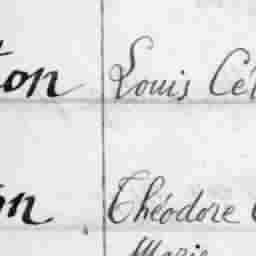 ton Louis Cél
on Théodore
Marie